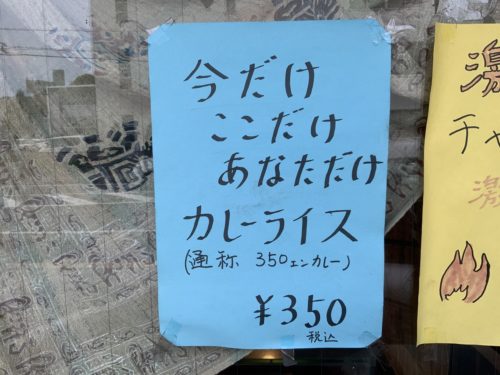 今だけ
ここだけ
あなただけ
カレーライス
(通称 350エンカレー)
¥350
税込
激
チャ
激